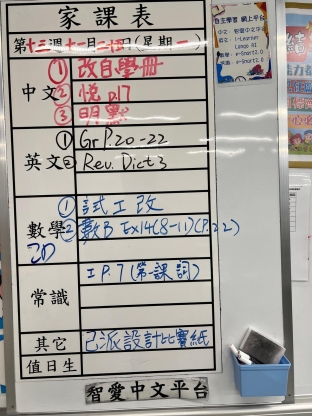 家課表
第十三週十一月二十五日(星期一)
中文 ① 改自學冊
② 悦 p17
③ 明默
英文 ① Gr P.20-22
② Rev. Dict 3
數學 ① 試工改
② 數B Ex14(8-11)(P.22)
2D
常識 工P.7(常課詞)
其它 已派設計比賽紙
值日生
智愛中文平台
自主學習 網上平台
中文: 智愛中文平台
英文: i-Learner